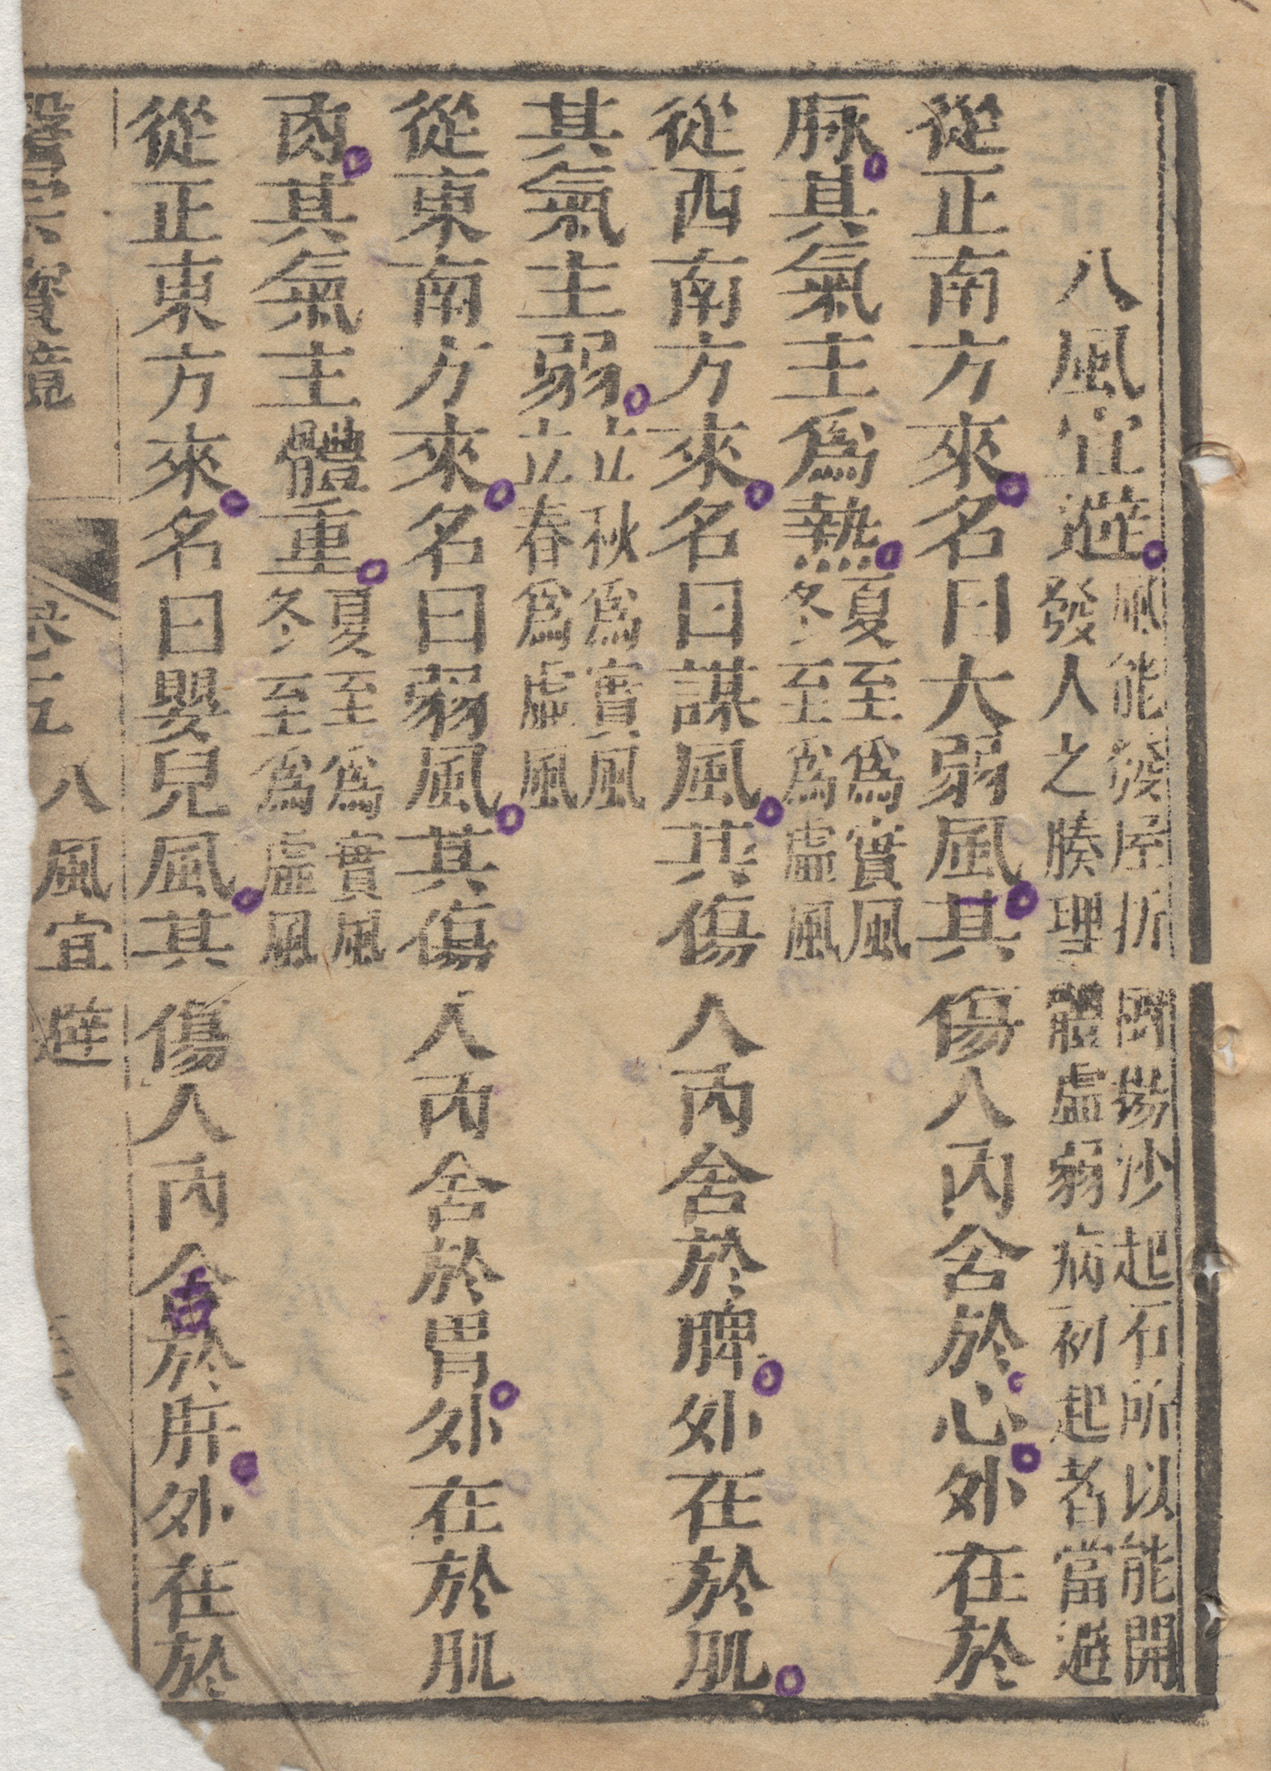 八風宜避風能發屋折樹揚沙起石所以能開
發人之腠理體虛弱病初起者當避
從正南方來名曰大弱風其傷人內舍於心外在於
脉其氣主爲熱夏至爲實風
冬至爲虛風
從西南方來名曰謀風其傷人內舍於脾外在於肌
其氣主弱立秋爲實風
立春爲虛風
從東南方來名曰弱風其傷人內舍於胃外在於肌
肉其氣主體重夏至爲實風
冬至爲虛風
從正東方來名曰嬰兒風其傷人內舍於肝外在於
醫宗寶鏡
八風宜避